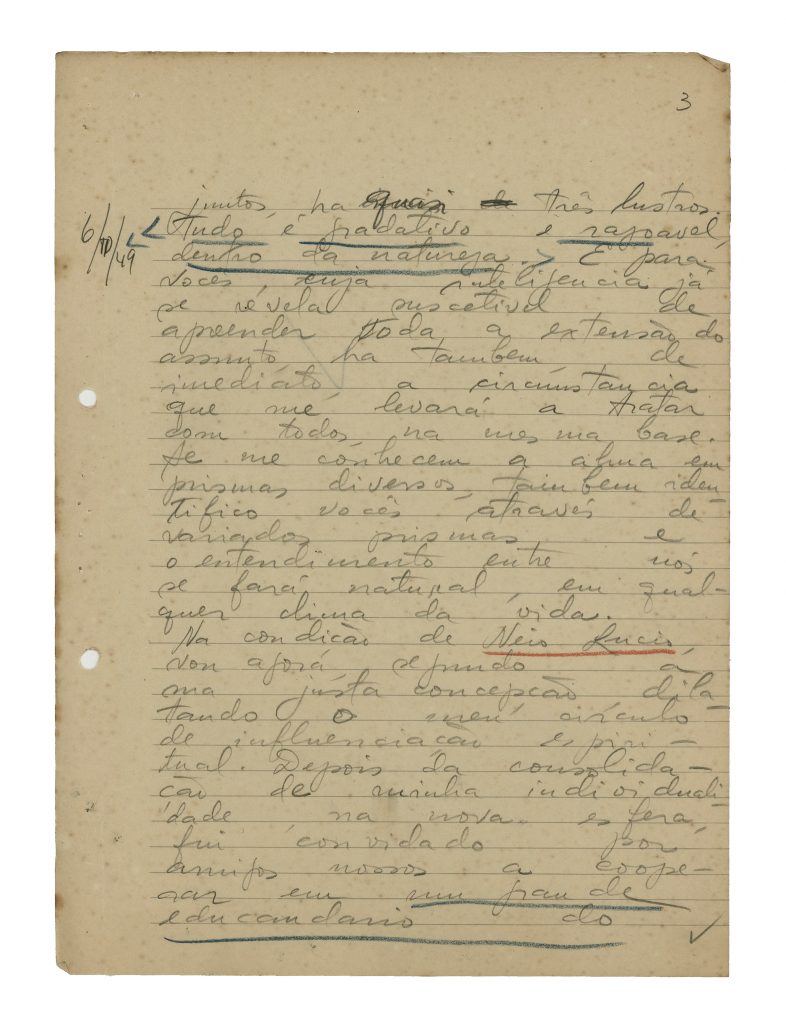 3
juntos, ha quasi de três lustros.
6/10/49
Tudo é gradativo e razoavel,
dentro da natureza. E para
vocês, cuja inteligencia já
se revela suscetivel de
apreender toda a extensão do
assunto, ha tambem, de
imediáto, a circunstancia
que me levará a tratar
com todos na mesma base.
Se me conhecem a alma em
prismas diversos, tambem iden-
tifico vocês através de
variados prismas e
o entendimento entre nós
se fará natural, em qual-
quer clima da vida.
Na condição de Neio Lucio,
vou agora, segundo a
ma justa concepção dila-
tando o meu circulo
de influenciação espiri-
tual. Depois da consolida-
ção de minha individuali-
dade na nova esfera,
fui convidado por
amigos nossos a coope-
rar em um grande
educandario do